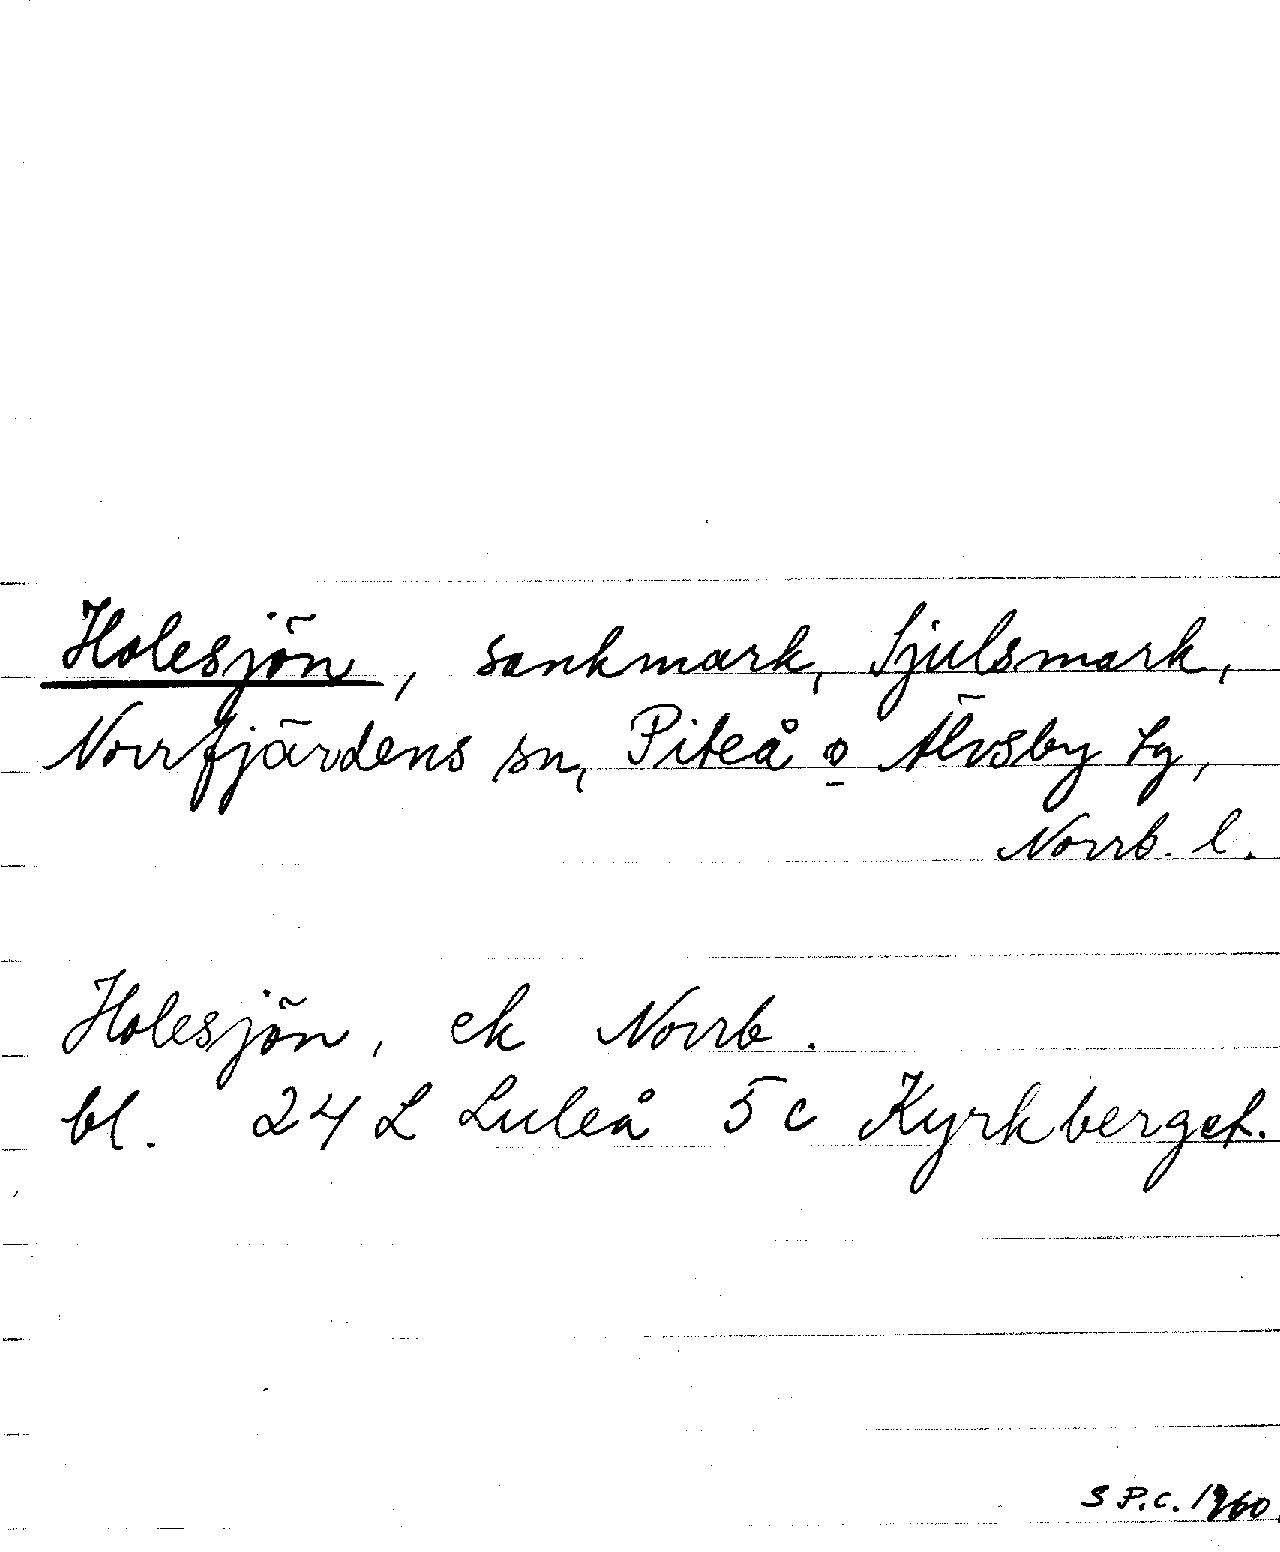 Holesjön, sankmark, Sjulsmark,
Norrfjärdens sn, Piteå o Älvsby tg,
Norrb. l.
Holesjön, ek Norrb.
bl. 24 L Luleå 5 c Kyrkberget.
S P.C. 1960.